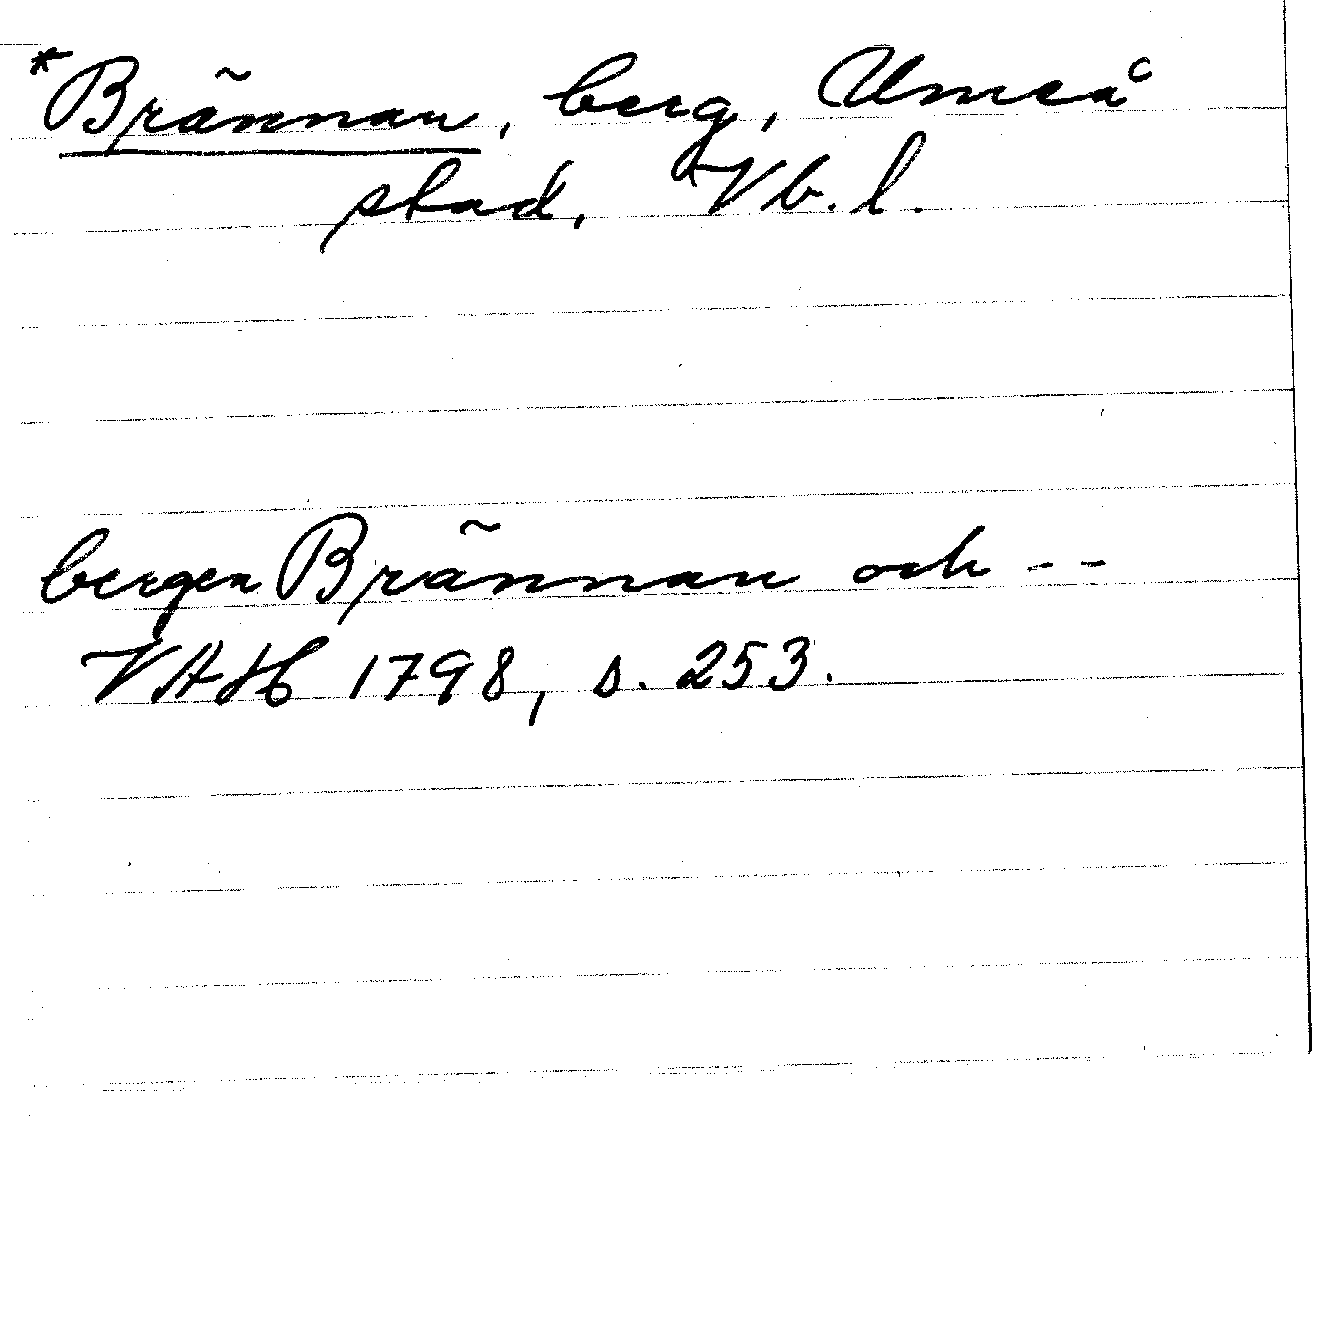 *Brännan, berg, Umeå
stad, Vb. l.
bergen Brännan och - -
VAH 1798, s. 253.